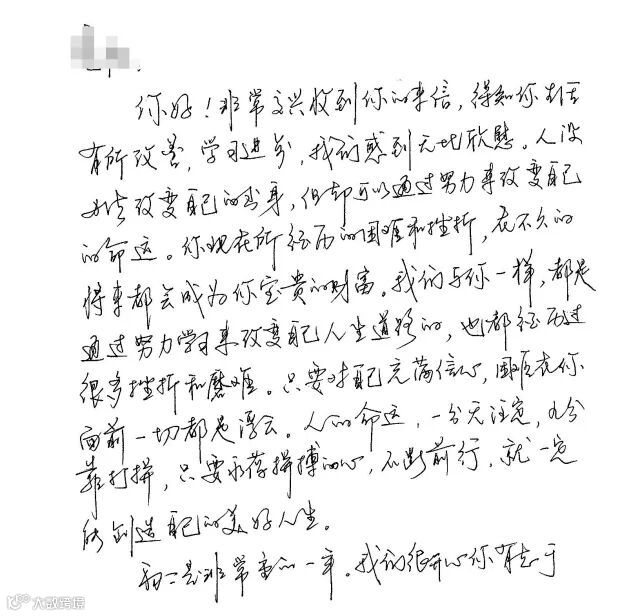 你好！非常高兴收到你的来信，得知你生活
有所改善，学习进步，我们感到无比欣慰。人没
办法改变自己的出身，但却可以通过努力来改变自己
的命运。你现在所经历的困难和挫折，在不久的
将来都会成为你宝贵的财富。我们与你一样，都是
通过努力学习来改变自己人生道路的，也都经历过
很多挫折和磨难。只要对自己充满信心，困难在你
面前一切都是浮云。人的命运，一分天注定，九分
靠打拼，只要永葆拼搏的心，不断前行，就一定
能创造自己的美好人生。
初二是非常重要的一年。我们很开心你有志于
大数跨境